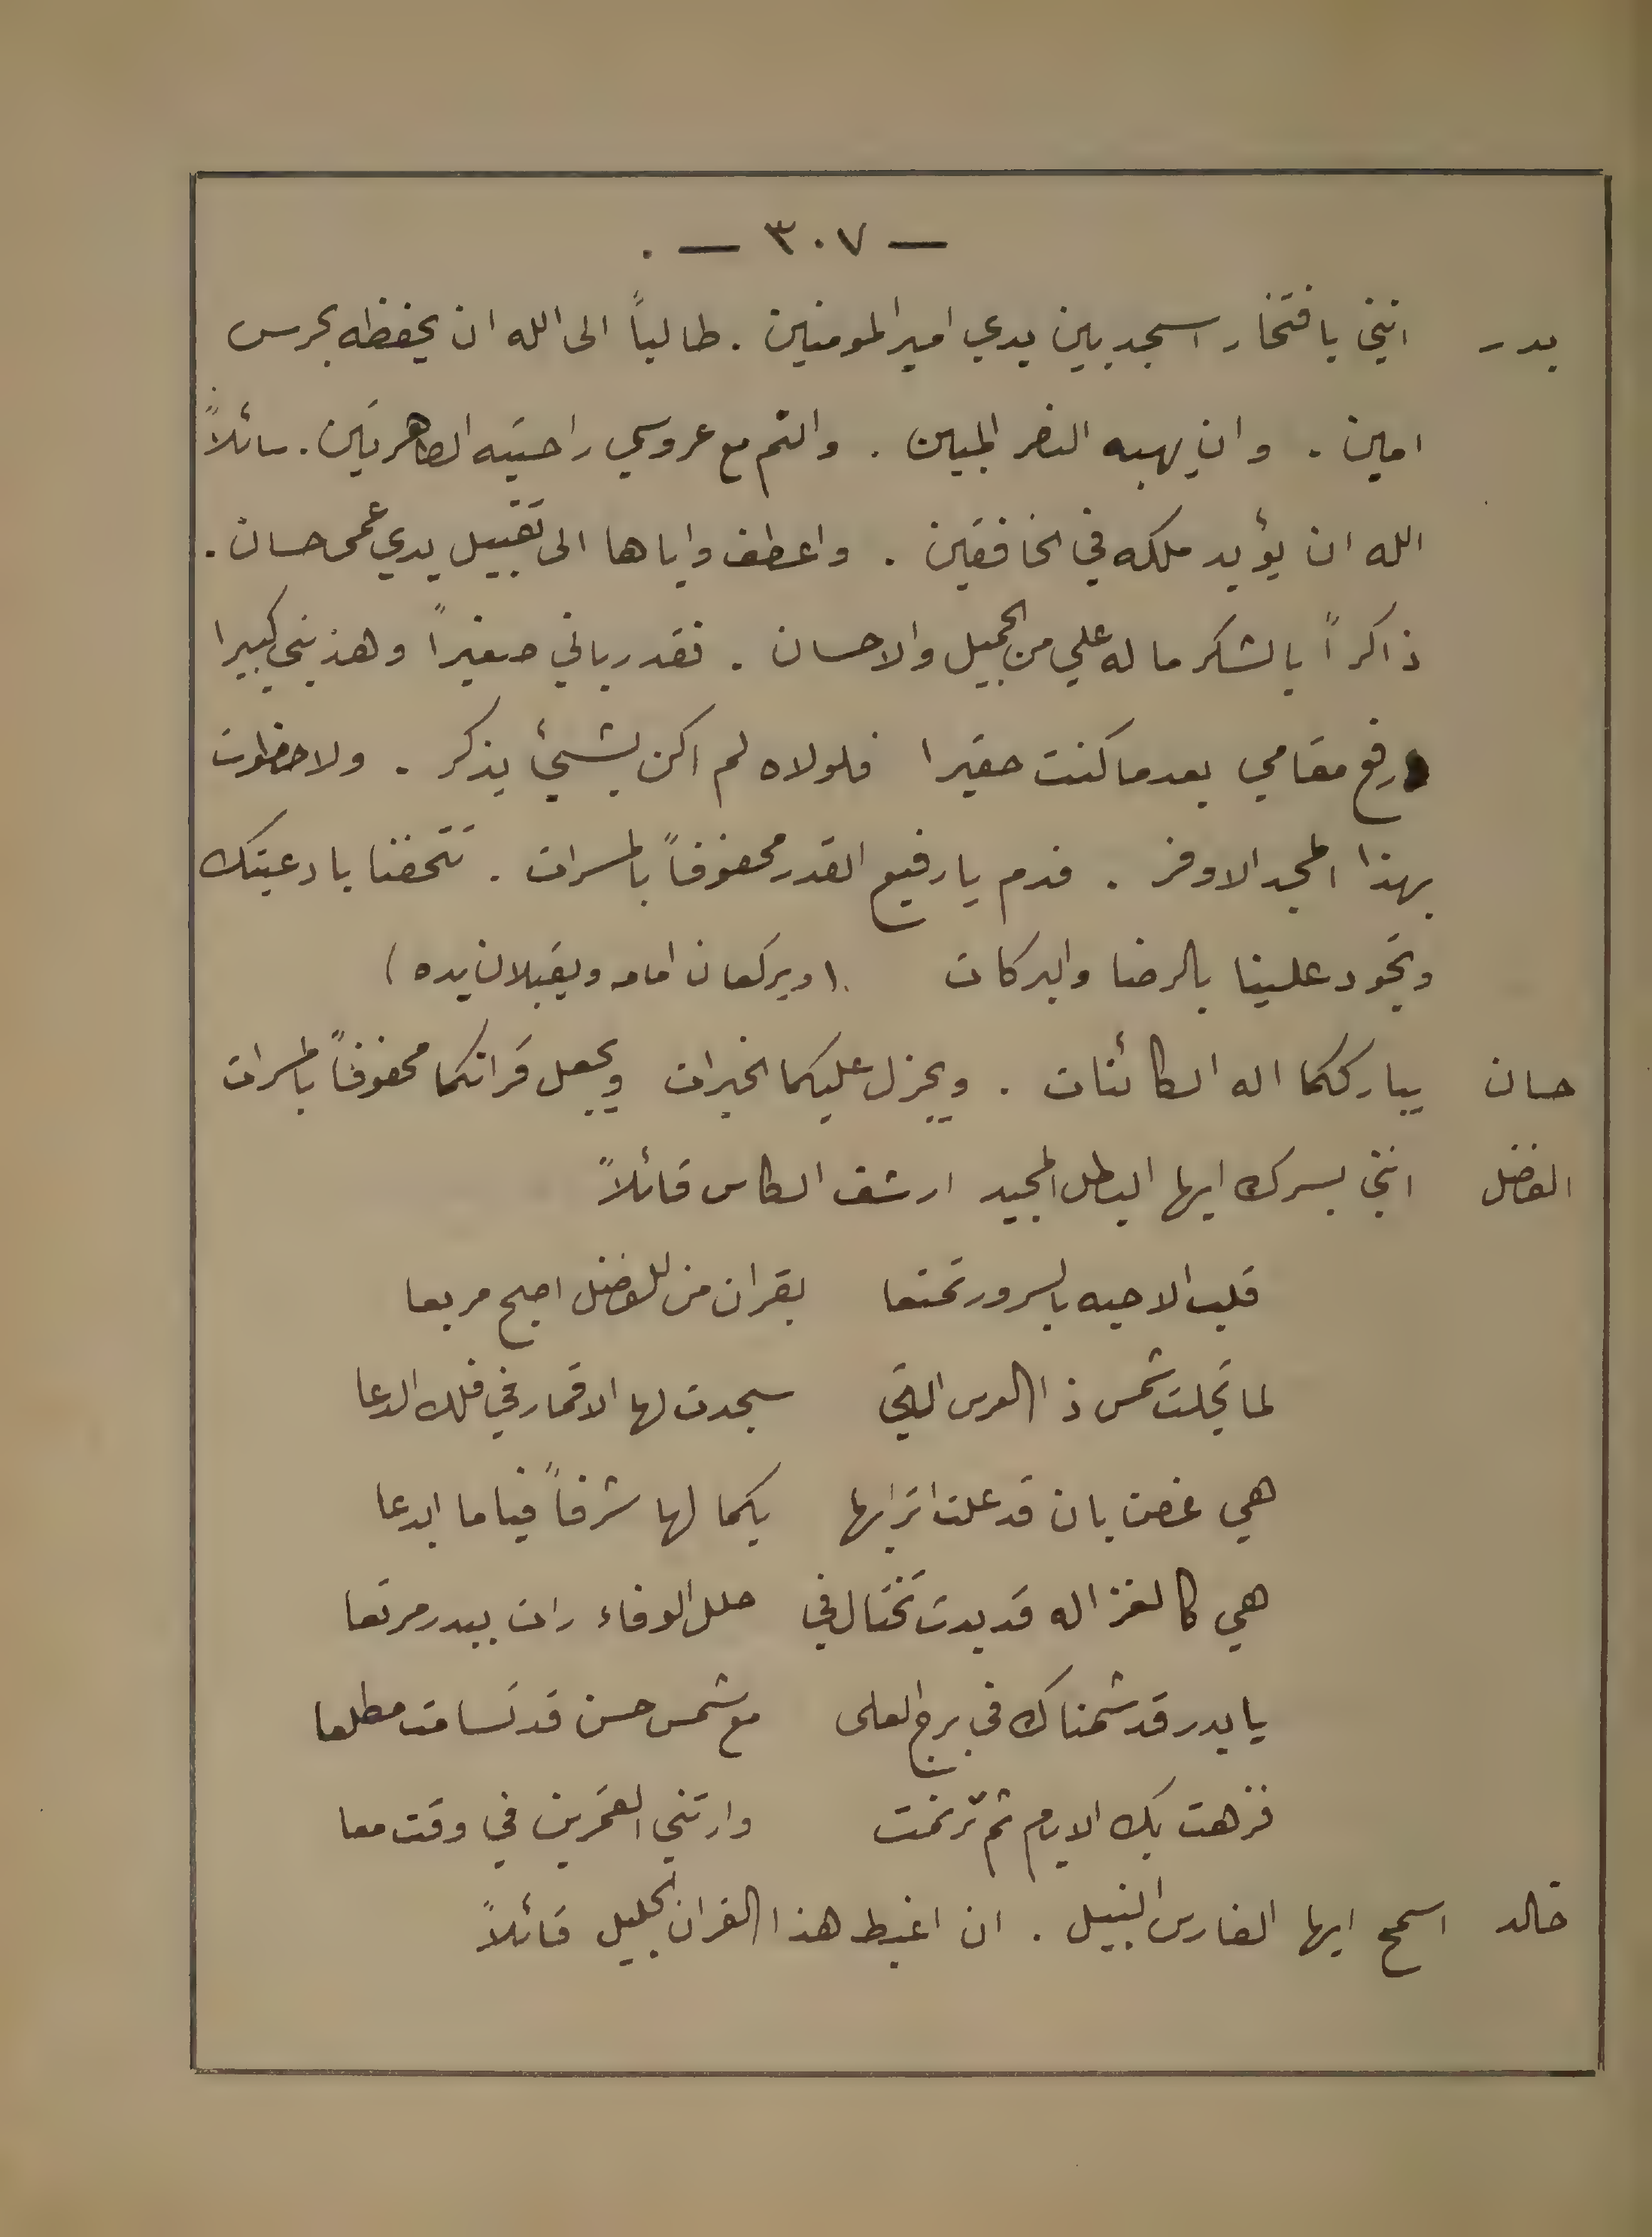 — ٣٠٧ — .
بدر انني بافتخار اسجد بين يدي امير المومنين . طالباً الى الله ان يحفظه بحرس
امين . وان يهبه النصر المبين . والثم مع عروسي راحتيه الطاهرتين . سائلاً
الله ان يؤيد ملكه في الخافقين . واعطف واياها الى تقبيل يدي عمي حسان .
ذاكراً بالشكر ما له علي من الجميل والاحسان . فقد رباني صغيراً وهذبني كبيرا
ورفع مقامي بعدما كنت حقيرا فلولاه لم اكن بشيئ يذكر . ولا حظوت
بهذا المجد الاوفر . فدم يا رفيع القدر محفوفاً بالمسرات . تتحفنا بادعيتك
وتجود علينا بالرضا والبركات (ويركعان امامه ويقبلان يده)
حسان يبارككما اله الكائنات . ويجزل عليكما الخيرات ويجعل قرانكما محفوفاً بالمسرات
الفضل انني بسرك ايها البطل المجيد ارشف الكاس قائلاً
قلب الاحبه بالسرور تمتعا بقران من للفضل اصبح مربعا
لما تجلت شمس ذا العرس التي سجدت لها الاقمار في فلك الدعا
هي غصن بان قد علت اترابها بكمالها شرفاً فياما ابدعا
هي كالغزاله قد بدت تختال في حلل الوفاء رات ببدر مرتعا
يا بدر قد شمناك في برج العلى مع شمس حسن قد تسامت مطلعا
فزهت بك الايام ثم ترنمت وارتني القمرين في وقت معا
خالد اسمح ايها الفارس النبيل . ان اغبط هذا القران الجليل قائلاً